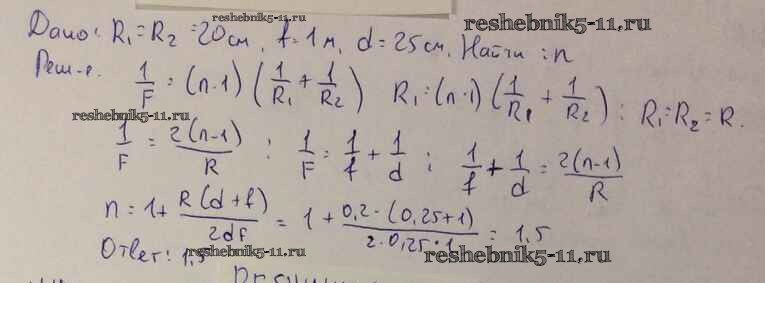 reshebnik5-11.ru
reshebnik5-11.ru
Дано: R₁ = R₂ = 20 см, f = 1 м, d = 25 см. Найти: n
Реш-е. 1/F = (n-1) (1/R₁ + 1/R₂) R₁ = (n-1) (1/R₁ + 1/R₂); R₁ = R₂ = R.
reshebnik5-11.ru
1/F = 2(n-1)/R ; 1/F = 1/f + 1/d ; 1/f + 1/d = 2(n-1)/R
n = 1 + R(d+f)/2df = 1 + 0,2·(0,25+1)/2·0,25·1 = 1,5
Ответ: 1,5
reshebnik5-11.ru
reshebnik5-11.ru